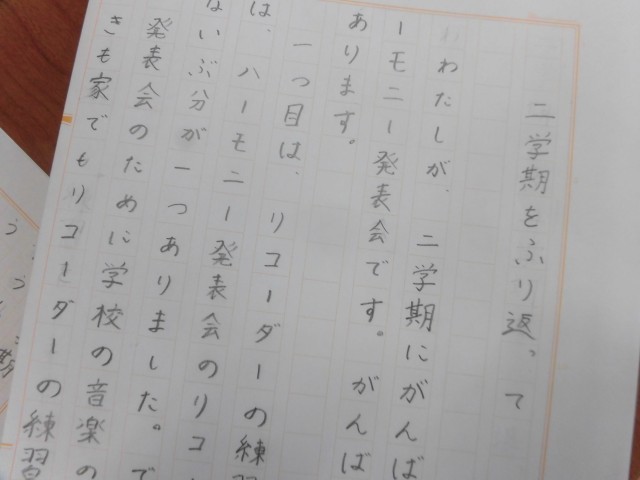 二学期をふり返って
わたしが、二学期にがんば
ーモニー発表会です。がんば
あります。
一つ目は、リコーダーの練
は、ハーモニー発表会のリコ
ないぶ分が一つありました。で
発表会のために学校の音楽の
きも家でもリコーダーの練習